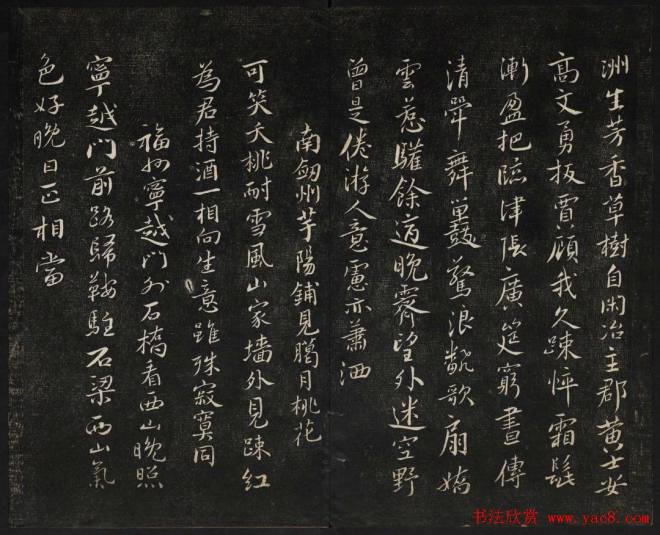 洲生芳香草樹自閑冶主郡黃士安
高文勇扳賈顧我久疎悴霜髭
漸盈把臨津張廣筵窮晝傳
清斝舞單鼓驚浪翻歌扇嬌
雲惹驩餘適晚霽望外迷空野
曾是倦游人意慮亦蕭洒
南劒州芋陽鋪見臘月桃花
可笑夭桃耐雪風山家墻外見疎紅
為君持酒一相向生意雖殊寂寞同
福州寧越門外石橋看西山晚照
寧越門前路歸鞍駐石梁西山氣
色好晚日正相當
书法欣赏 www.yac8.com